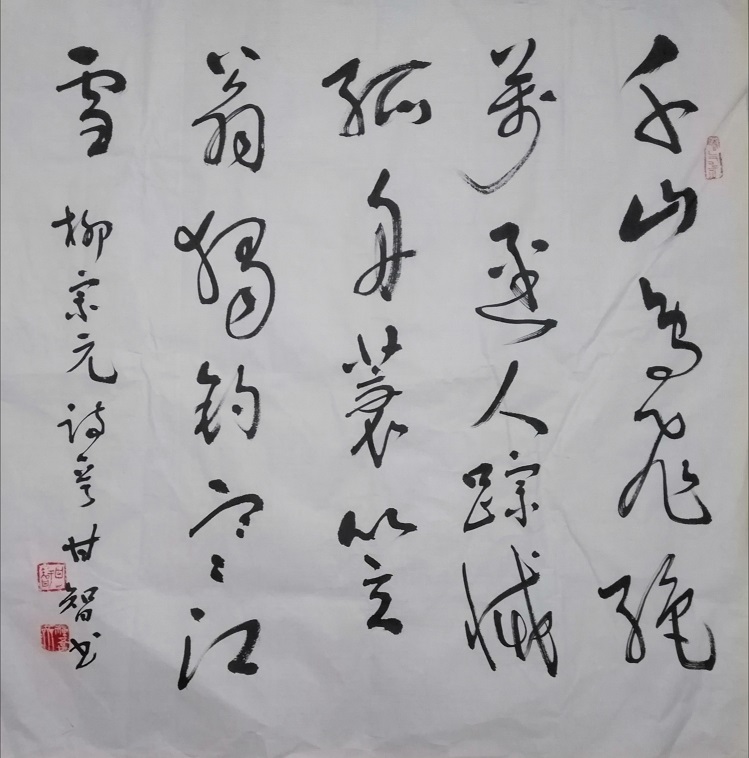 千山鸟飞绝
万迳人踪灭
孤舟蓑笠
翁獨钓寒江
雪 柳宗元诗意甘智书